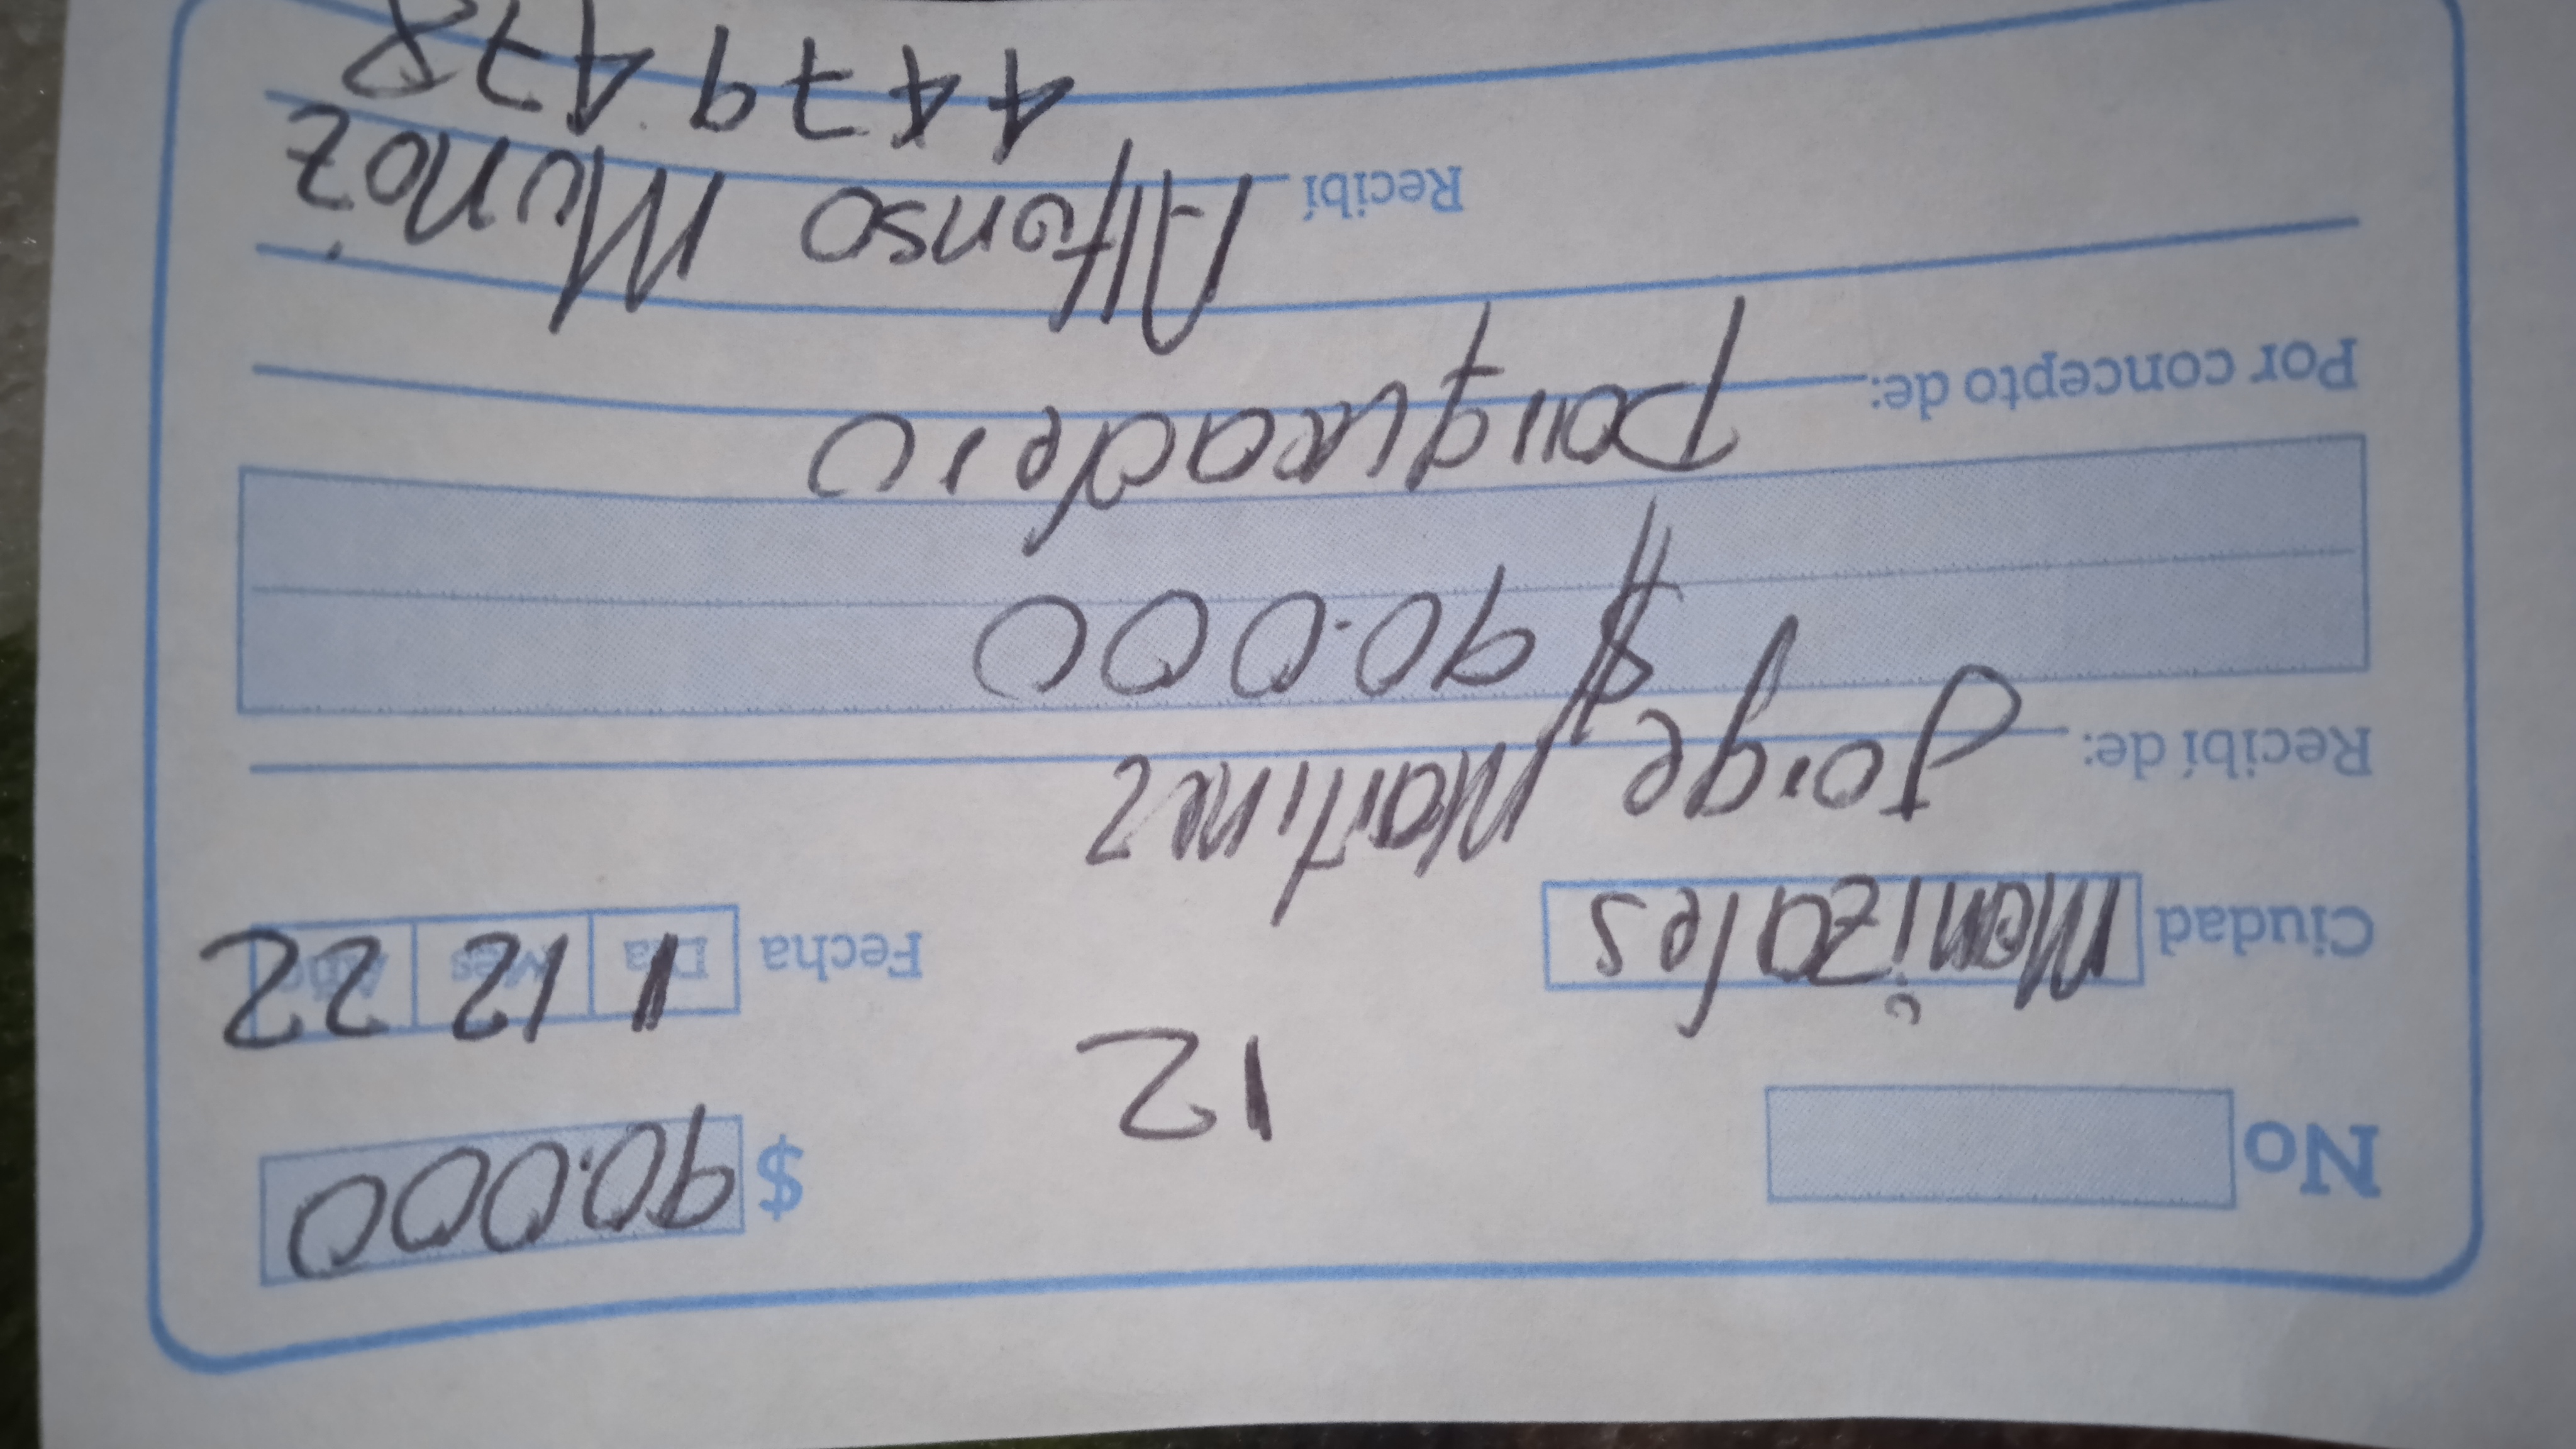 No $ 90.000
12
Ciudad Manizales Fecha Día 1 Mes 12 Año 22
Recibí de: Jorge Martinez
$ 90.000
Por concepto de: Parqueadero
Recibí Alfonso Munoz
4479478